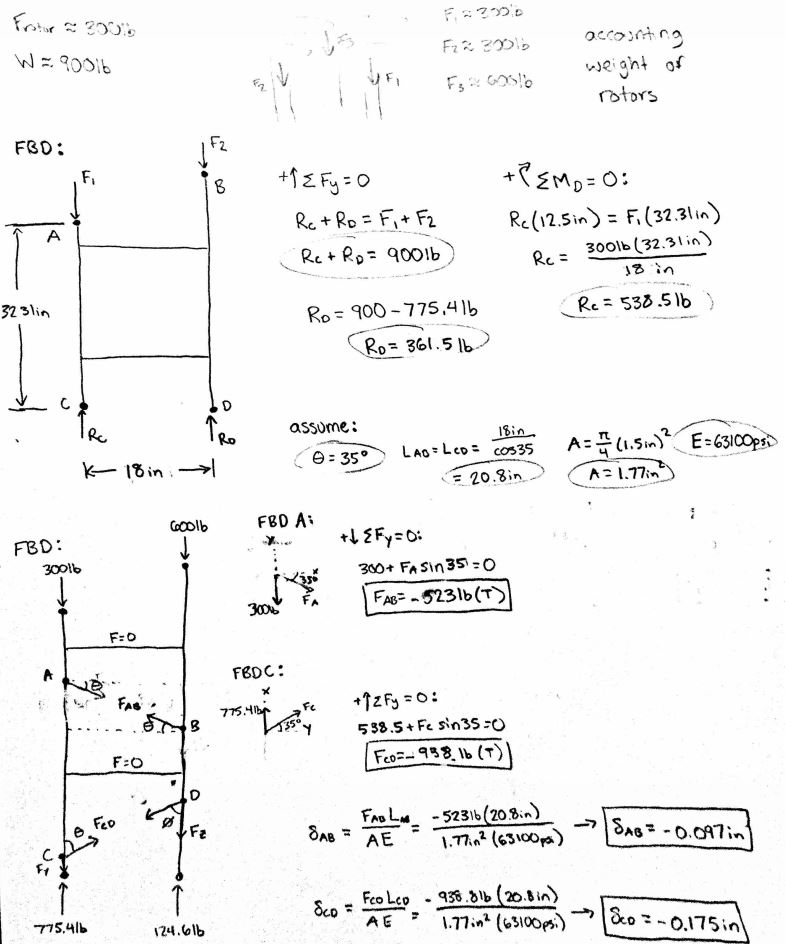 Frotor ≈ 300lb
W ≈ 900lb
F₃
F₂
F₁
F₁ ≈ 300lb
F₂ ≈ 300lb
F₃ ≈ 600lb
accounting
weight of
rotors
FBD:
F₁
F₂
B
A
32.31in
C
D
Rc
RD
18in.
+↑ΣFy=0
Rc + RD = F₁ + F₂
Rc + RD = 900lb
RD = 900 - 775.4lb
RD = 361.5 lb
+↱ΣMD=0:
Rc(12.5in) = F₁(32.31in)
Rc = 300lb(32.31in) / 18 in
Rc = 538.5lb
assume:
θ = 35°
LAB = LCD = 18in / cos35
= 20.8in
A = π/4 (1.5in)²
A = 1.77in²
E = 63100psi
FBD:
300lb
600lb
F=0
A
θ
FAB
θ
B
F=0
D
ø
F₂
θ
FCD
C
F₁
775.4lb
124.6lb
FBD A:
y
x
35°
FA
300lb
+↓ΣFy=0:
300 + FA sin35 = 0
FAB = -523lb (T)
FBD C:
x
775.4lb
Fc
35°
y
+↑ΣFy=0:
538.5 + Fc sin35 = 0
FCD = -938.lb (T)
δAB = FAB LAB / AE = -523lb (20.8in) / 1.77in² (63100psi) → δAB = -0.097in
δCD = FCD LCD / AE = -938.8lb (20.8in) / 1.77in² (63100psi) → δCD = -0.175in